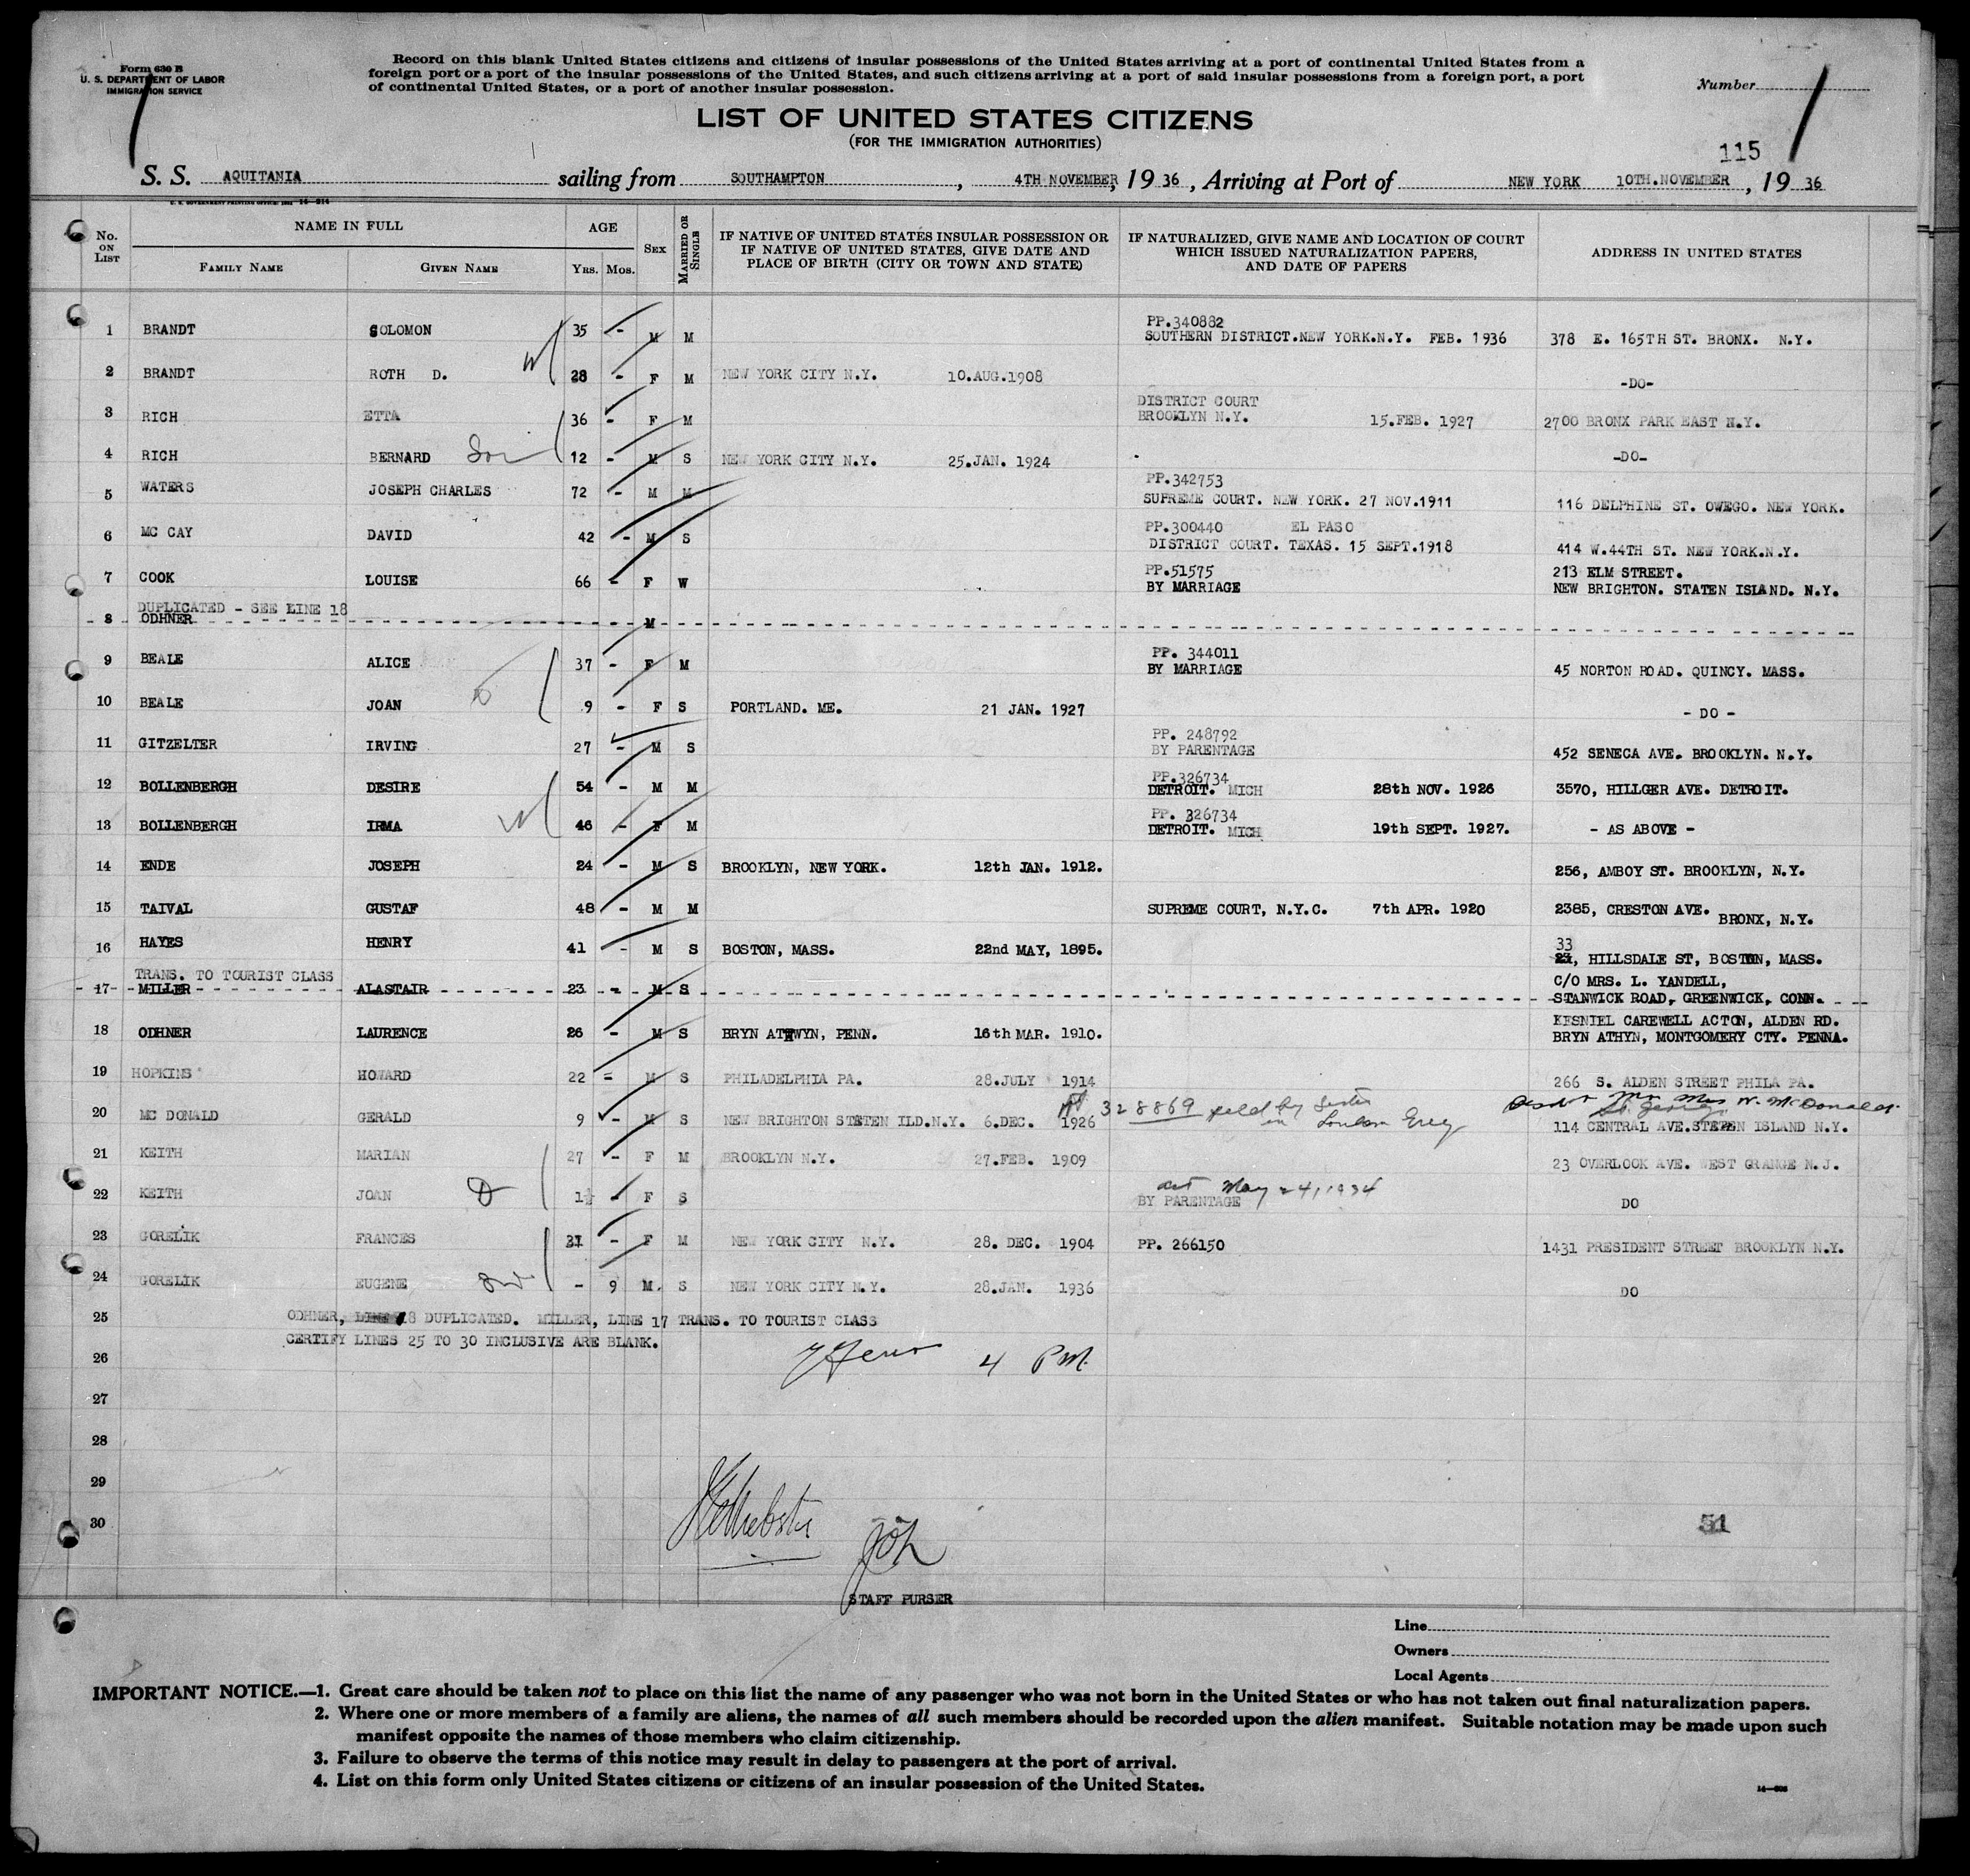 Form 630 B
U. S. DEPARTMENT OF LABOR
IMMIGRATION SERVICE
Record on this blank United States citizens and citizens of insular possessions of the United States arriving at a port of continental United States from a
foreign port or a port of the insular possessions of the United States, and such citizens arriving at a port of said insular possessions from a foreign port, a port
of continental United States, or a port of another insular possession.
Number
LIST OF UNITED STATES CITIZENS
(FOR THE IMMIGRATION AUTHORITIES)
115
S. S. AQUITANIA sailing from SOUTHAMPTON, 4TH NOVEMBER, 1936, Arriving at Port of NEW YORK 10TH.NOVEMBER, 1936
No. ON LIST
NAME IN FULL
FAMILY NAME GIVEN NAME
AGE
Yrs. Mos.
SEX
MARRIED OR SINGLE
IF NATIVE OF UNITED STATES INSULAR POSSESSION OR
IF NATIVE OF UNITED STATES, GIVE DATE AND
PLACE OF BIRTH (CITY OR TOWN AND STATE)
IF NATURALIZED, GIVE NAME AND LOCATION OF COURT
WHICH ISSUED NATURALIZATION PAPERS,
AND DATE OF PAPERS
ADDRESS IN UNITED STATES
PP.340882
1 BRANDT SOLOMON 35 - M M SOUTHERN DISTRICT.NEW YORK.N.Y. FEB. 1936 378 E. 165TH ST. BRONX. N.Y.
2 BRANDT ROTH D. W 28 - F M NEW YORK CITY N.Y. 10.AUG.1908 -DO-
DISTRICT COURT
3 RICH ETTA 36 - F M BROOKLYN N.Y. 15.FEB. 1927 2700 BRONX PARK EAST N.Y.
4 RICH BERNARD Son 12 - M S NEW YORK CITY N.Y. 25.JAN. 1924 -DO-
PP.342753
5 WATERS JOSEPH CHARLES 72 - M M SUPREME COURT. NEW YORK. 27 NOV.1911 116 DELPHINE ST. OWEGO. NEW YORK.
PP.300440 EL PASO
6 MC CAY DAVID 42 - M S DISTRICT COURT. TEXAS. 15 SEPT.1918 414 W.44TH ST. NEW YORK.N.Y.
PP.51575 213 ELM STREET.
7 COOK LOUISE 66 - F W BY MARRIAGE NEW BRIGHTON. STATEN ISLAND. N.Y.
DUPLICATED - SEE LINE 18
8 ODHNER M
PP. 344011
9 BEALE ALICE 37 - F M BY MARRIAGE 45 NORTON ROAD. QUINCY. MASS.
10 BEALE JOAN 9 - F S PORTLAND. ME. 21 JAN. 1927 - DO -
PP. 248792
11 GITZELTER IRVING 27 - M S BY PARENTAGE 452 SENECA AVE. BROOKLYN. N.Y.
PP.326734
12 BOLLENBERGH DESIRE 54 - M M DETROIT. MICH 28th NOV. 1926 3570, HILLGER AVE. DETROIT.
PP. 326734
13 BOLLENBERGH IRMA W 46 - F M DETROIT. MICH 19th SEPT. 1927. - AS ABOVE -
14 ENDE JOSEPH 24 - M S BROOKLYN, NEW YORK. 12th JAN. 1912. 256, AMBOY ST. BROOKLYN, N.Y.
15 TAIVAL GUSTAF 48 - M M SUPREME COURT, N.Y.C. 7th APR. 1920 2385, CRESTON AVE. BRONX, N.Y.
33
16 HAYES HENRY 41 - M S BOSTON, MASS. 22nd MAY, 1895. HILLSDALE ST, BOSTON, MASS.
TRANS. TO TOURIST CLASS C/O MRS. L. YANDELL,
17 MILLER ALASTAIR 23 - M S STANWICK ROAD, GREENWICK, CONN.
KESNIEL CAREWELL ACTON, ALDEN RD.
18 ODHNER LAURENCE 26 - M S BRYN ATHWYN, PENN. 16th MAR. 1910. BRYN ATHYN, MONTGOMERY CTY. PENNA.
19 HOPKINS HOWARD 22 - M S PHILADELPHIA PA. 28.JULY 1914 266 S. ALDEN STREET PHILA PA.
PP 328869 held by sister in London Eng Mr Mrs W. McDonald
20 MC DONALD GERALD 9 - M S NEW BRIGHTON STATEN ILD.N.Y. 6.DEC. 1926 114 CENTRAL AVE.STATEN ISLAND N.Y.
21 KEITH MARIAN 27 - F M BROOKLYN N.Y. 27.FEB. 1909 23 OVERLOOK AVE. WEST ORANGE N.J.
Act May 24, 1934
22 KEITH JOAN D 1½ - F S BY PARENTAGE DO
23 GORELIK FRANCES 31 - F M NEW YORK CITY N.Y. 28. DEC. 1904 PP. 266150 1431 PRESIDENT STREET BROOKLYN N.Y.
24 GORELIK EUGENE Son - 9 M. S NEW YORK CITY N.Y. 28.JAN. 1936 DO
25 ODHNER, LINE 18 DUPLICATED. MILLER, LINE 17 TRANS. TO TOURIST CLASS
CERTIFY LINES 25 TO 30 INCLUSIVE ARE BLANK.
26 4 PM.
27
28
29
30 51
STAFF PURSER
Line
Owners
Local Agents
IMPORTANT NOTICE.—1. Great care should be taken not to place on this list the name of any passenger who was not born in the United States or who has not taken out final naturalization papers.
2. Where one or more members of a family are aliens, the names of all such members should be recorded upon the alien manifest. Suitable notation may be made upon such
manifest opposite the names of those members who claim citizenship.
3. Failure to observe the terms of this notice may result in delay to passengers at the port of arrival.
4. List on this form only United States citizens or citizens of an insular possession of the United States.